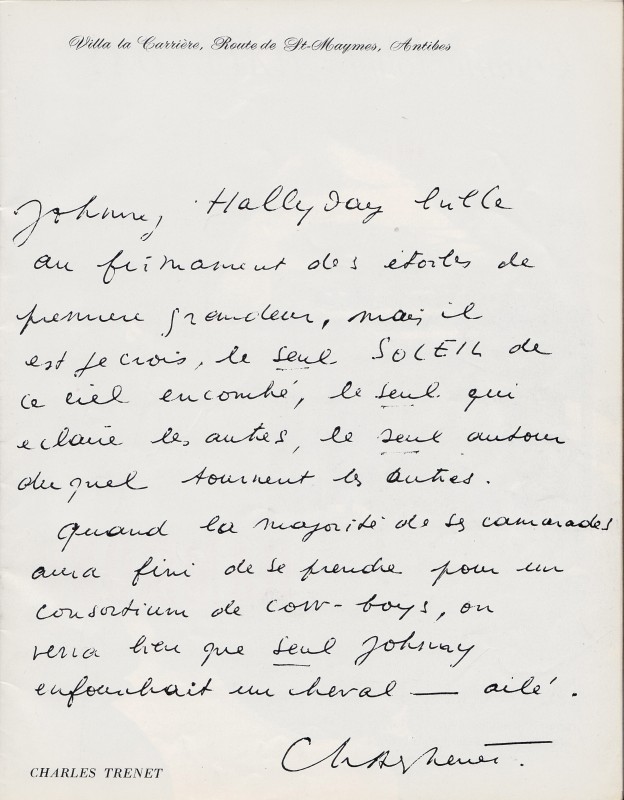 Villa la Carrière, Route de St-Maymes, Antibes
Johnny Hallyday brille
au firmament des étoiles de
première grandeur, mais il
est je crois, le seul SOLEIL de
ce ciel encombré, le seul qui
eclaire les autres, le seul autour
duquel tournent les autres.
Quand la majorité de ses camarades
aura fini de se prendre pour un
consortium de cow-boys, on
verra bien que seul Johnny
enfourchait un cheval — ailé.
Charles Trenet.
CHARLES TRENET